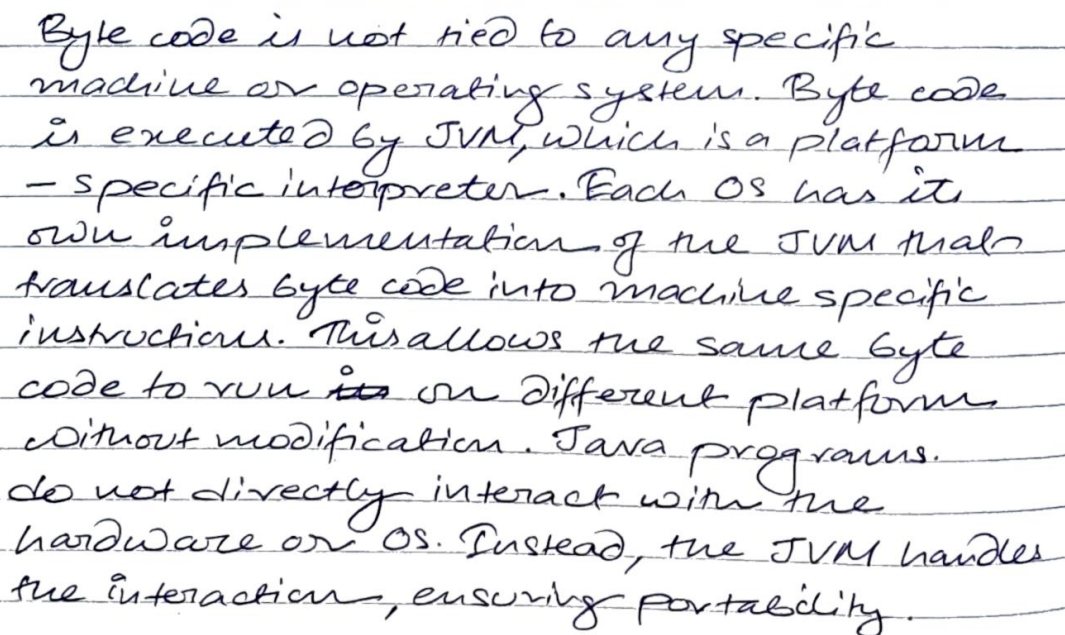 Byte code is not tied to any specific
machine or operating system. Byte code
is executed by JVM, which is a platform
- specific interpreter. Each OS has its
own implementation of the JVM that
translates byte code into machine specific
instructions. This allows the same byte
code to run on different platform
without modification. Java programs.
do not directly interact with the
hardware or OS. Instead, the JVM handles
the interaction, ensuring portability.